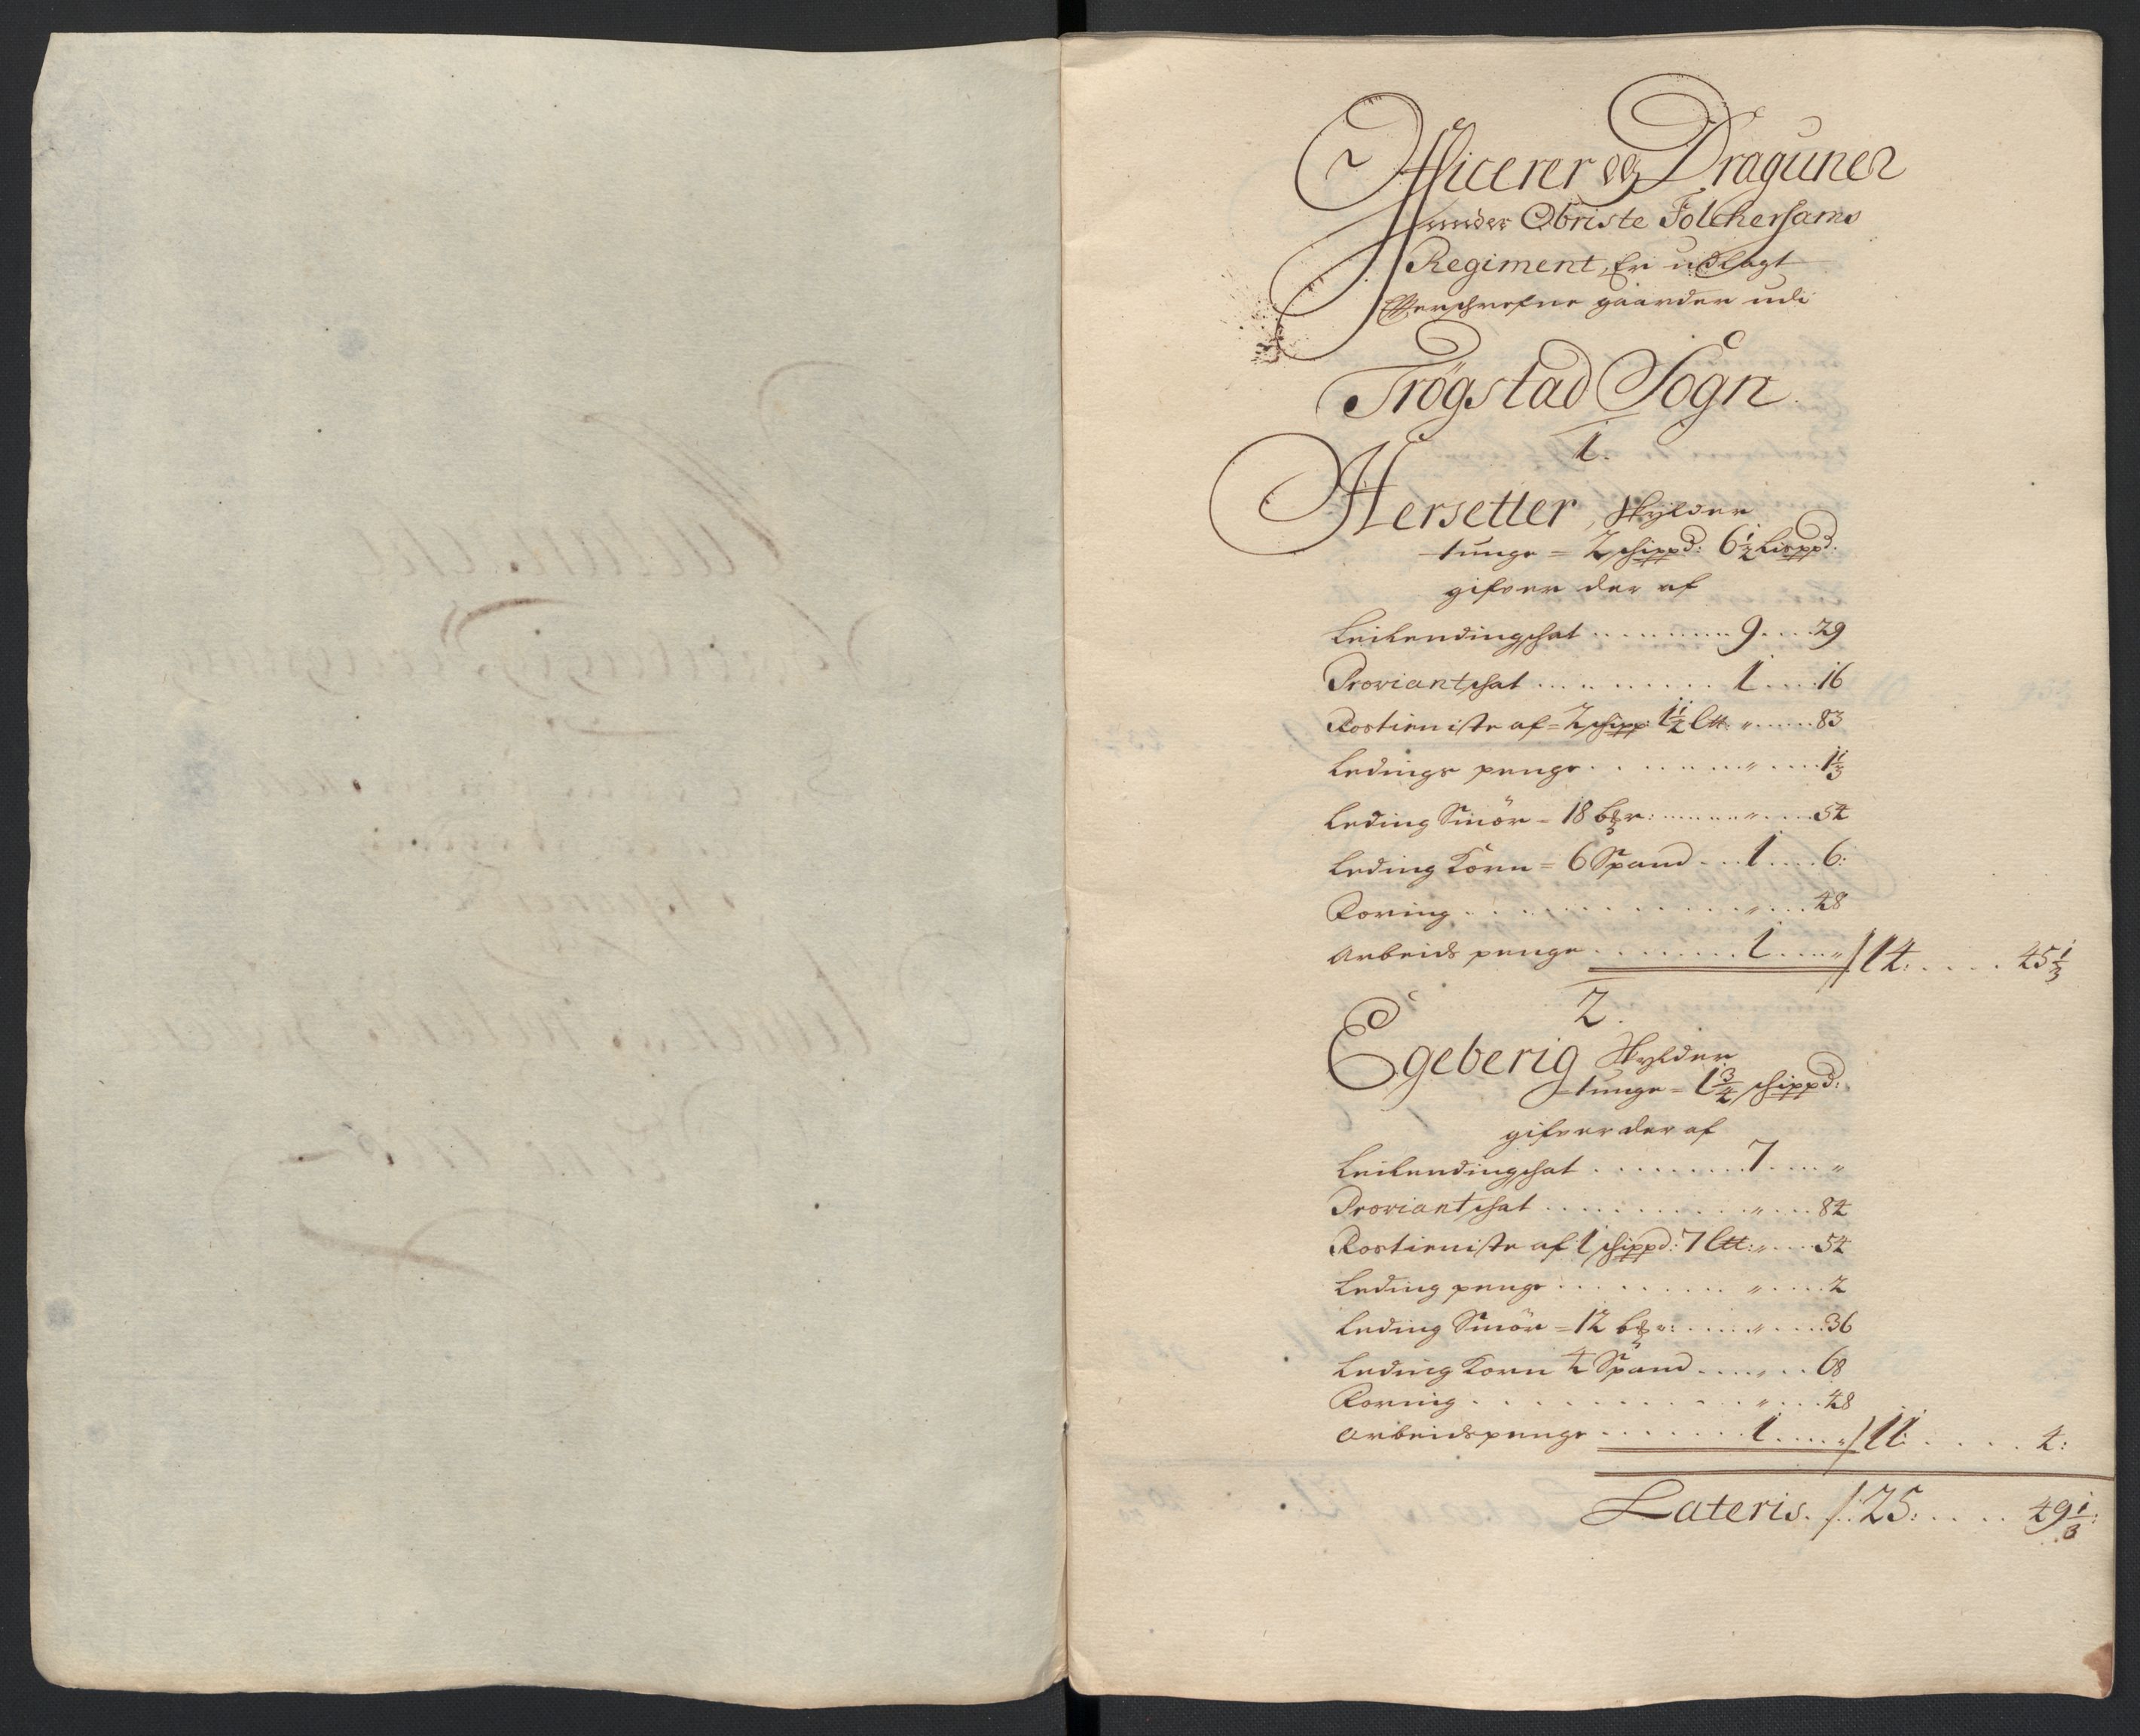 Officerer og Draguner
under Obriste Folchersams
Regiment, Er udlagt
Effterschrefne gaarder udi
Trögstad Sogn.
1.
Hersetter, skylder
tunge = 2 schippd: 6½ Lispd:
gifver der af
Leilendingschat .......... 9 .... 29
Proviantschat .......... 1 .... 16
Rostieniste af = 2 schipp: 1½ Ltt: " ...... 83
Ledings penge .......... " .... 1⅓
Leding Smör = 18 bpr: ........ " .... 54
Leding Korn = 6 Spand ... 1 .... 6:
Foring .......... " .... 48
Arbeids penge ........ 1 .... " / 14: ..... 45⅓
2.
Egeberig Skylder
tunge = 1¾ schippd:
gifver der af
Leilendingschat ......... 7 .... "
Proviantschat .......... " .... 84
Rostieniste af 1 schippd: 7 Ltt: " .... 54
Leding penge .......... " .... 2
Leding Smör = 12 bpr: ..... " .... 36
Leding Korn 4 Spand ..... " ... 68
Foring .......... " .... 48
Arbeidspenge ....... 1 .... " / 11: ..... 4:
Lateris. /: 25: ..... 49⅓: